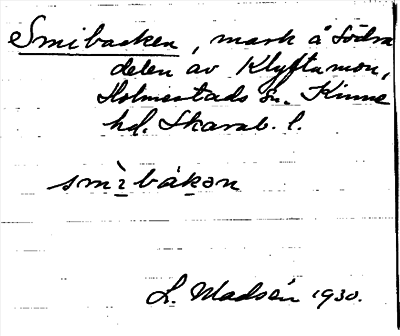 Smibacken, mark å södra
delen av Klyftamon,
Holmestads sn. Kinne
hd. Skarab. l.
smìbákən
L. Madsén 1930.